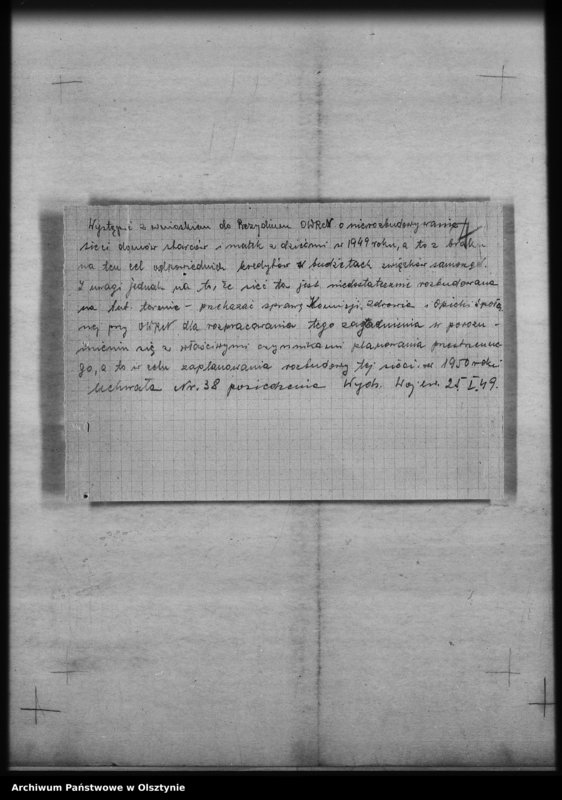 Wystąpić z wnioskiem do Prezydium OWRN o nierozbudowywanie
sieci domów starców i matek z dziećmi w 1949 roku, a to z braku
na ten cel odpowiednich kredytów w budżetach związków samorząd.
Z uwagi jednak na to, że sieć ta jest niedostatecznie rozbudowana
na tut. terenie – przekazać sprawę Komisji Zdrowia i Opieki Społe
nej przy OWRN dla rozpracowania tego zagadnienia w porozu-
mieniu się z właściwymi czynnikami planowania przestrzenne
go, a to w celu zaplanowania rozbudowy tej sieci na 1950 rok
Uchwała Nr. 38 posiedzenia Wydz. Wojew. 25.I.49.
Archiwum Państwowe w Olsztynie